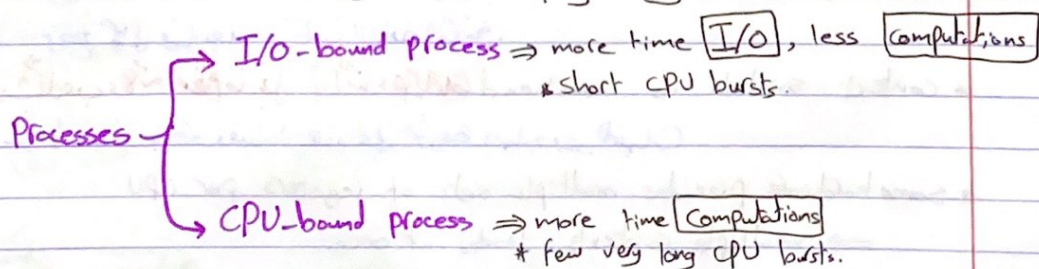 I/O-bound process ⇒ more time I/O, less Computations
* short CPU bursts.
Processes
CPU-bound process ⇒ more time Computations
* few very long CPU bursts.